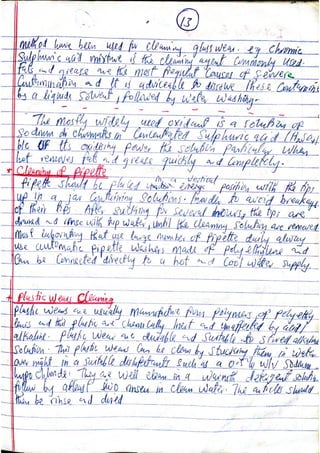 13
method have been used for cleaning glass wear. eg Chromic
Sulphuric acid mixture is the cleaning agent Commonly used.
Fats and grease are the most frequent Causes of Severe
Contamination and It is adviceable to dissolve These Contaminants
by a Liquids Solvent, followed by Water Washing.
The mostly widely used oxidant is a Solution of
Sodium dichromates in Concentrated Sulphuric acid
OF Its oxidizing power the Solution particular When
hot removes fats and grease quickly and Completely.
Cleaning of Pipette
in a vertical
Pipette should be placed position with the tips
up in a Jar Containing Solutions to avoid breakage
of their tips. After Suctioning for Several hours, the tips are
drained and rinse with tap water, Until the cleaning Solution are removed
Most laboratory that use large number of Pipette daily always
use automatic pipette washers made of Polyethylene and
Can be Connected directly to a hot and Cool Water Supply.
Plastic Wears Cleaning
Plastic Wears are usually Manufacture from Polymers of Polyethy
and this plastic are Chemically Inert and unaffected by acid/
alkaline. Plastic Wear are durable and Suitable to alkaline
Solution. This plastic wears Can be clean by them in water
over night in a Suitable disinfectants Such as a W/V Sodium
hypo Chloride. They are Well Clean in a detergent Solution
follow by atleast two rinses in Clean water. The articles Should
then be rinse and dried.